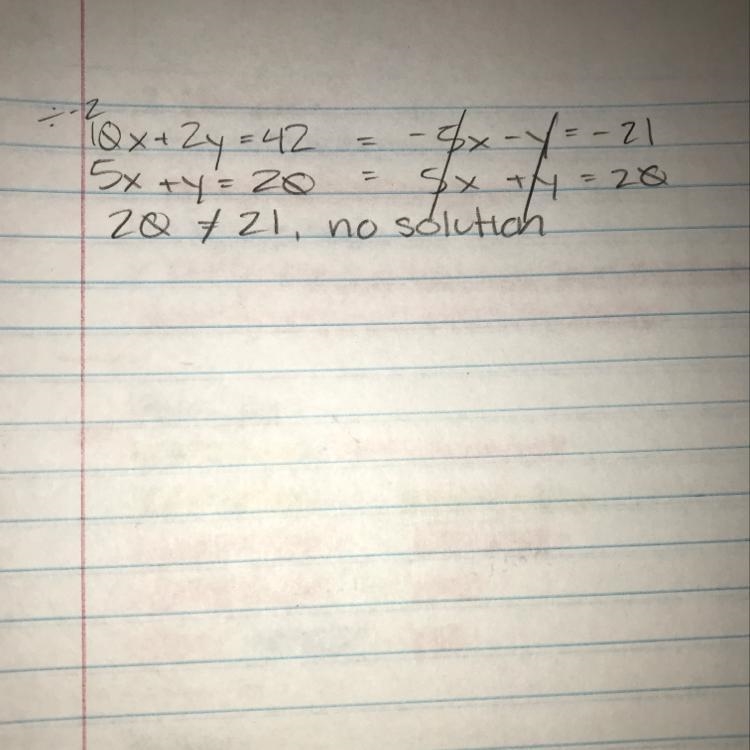 ÷-2
10x + 2y = 42 = -5x - y = -21
5x + y = 20 = 5x + y = 20
20 ≠ 21, no solution